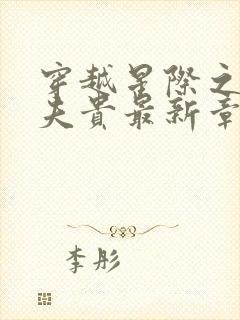 穿越星际之
夫贵最新章
李彤